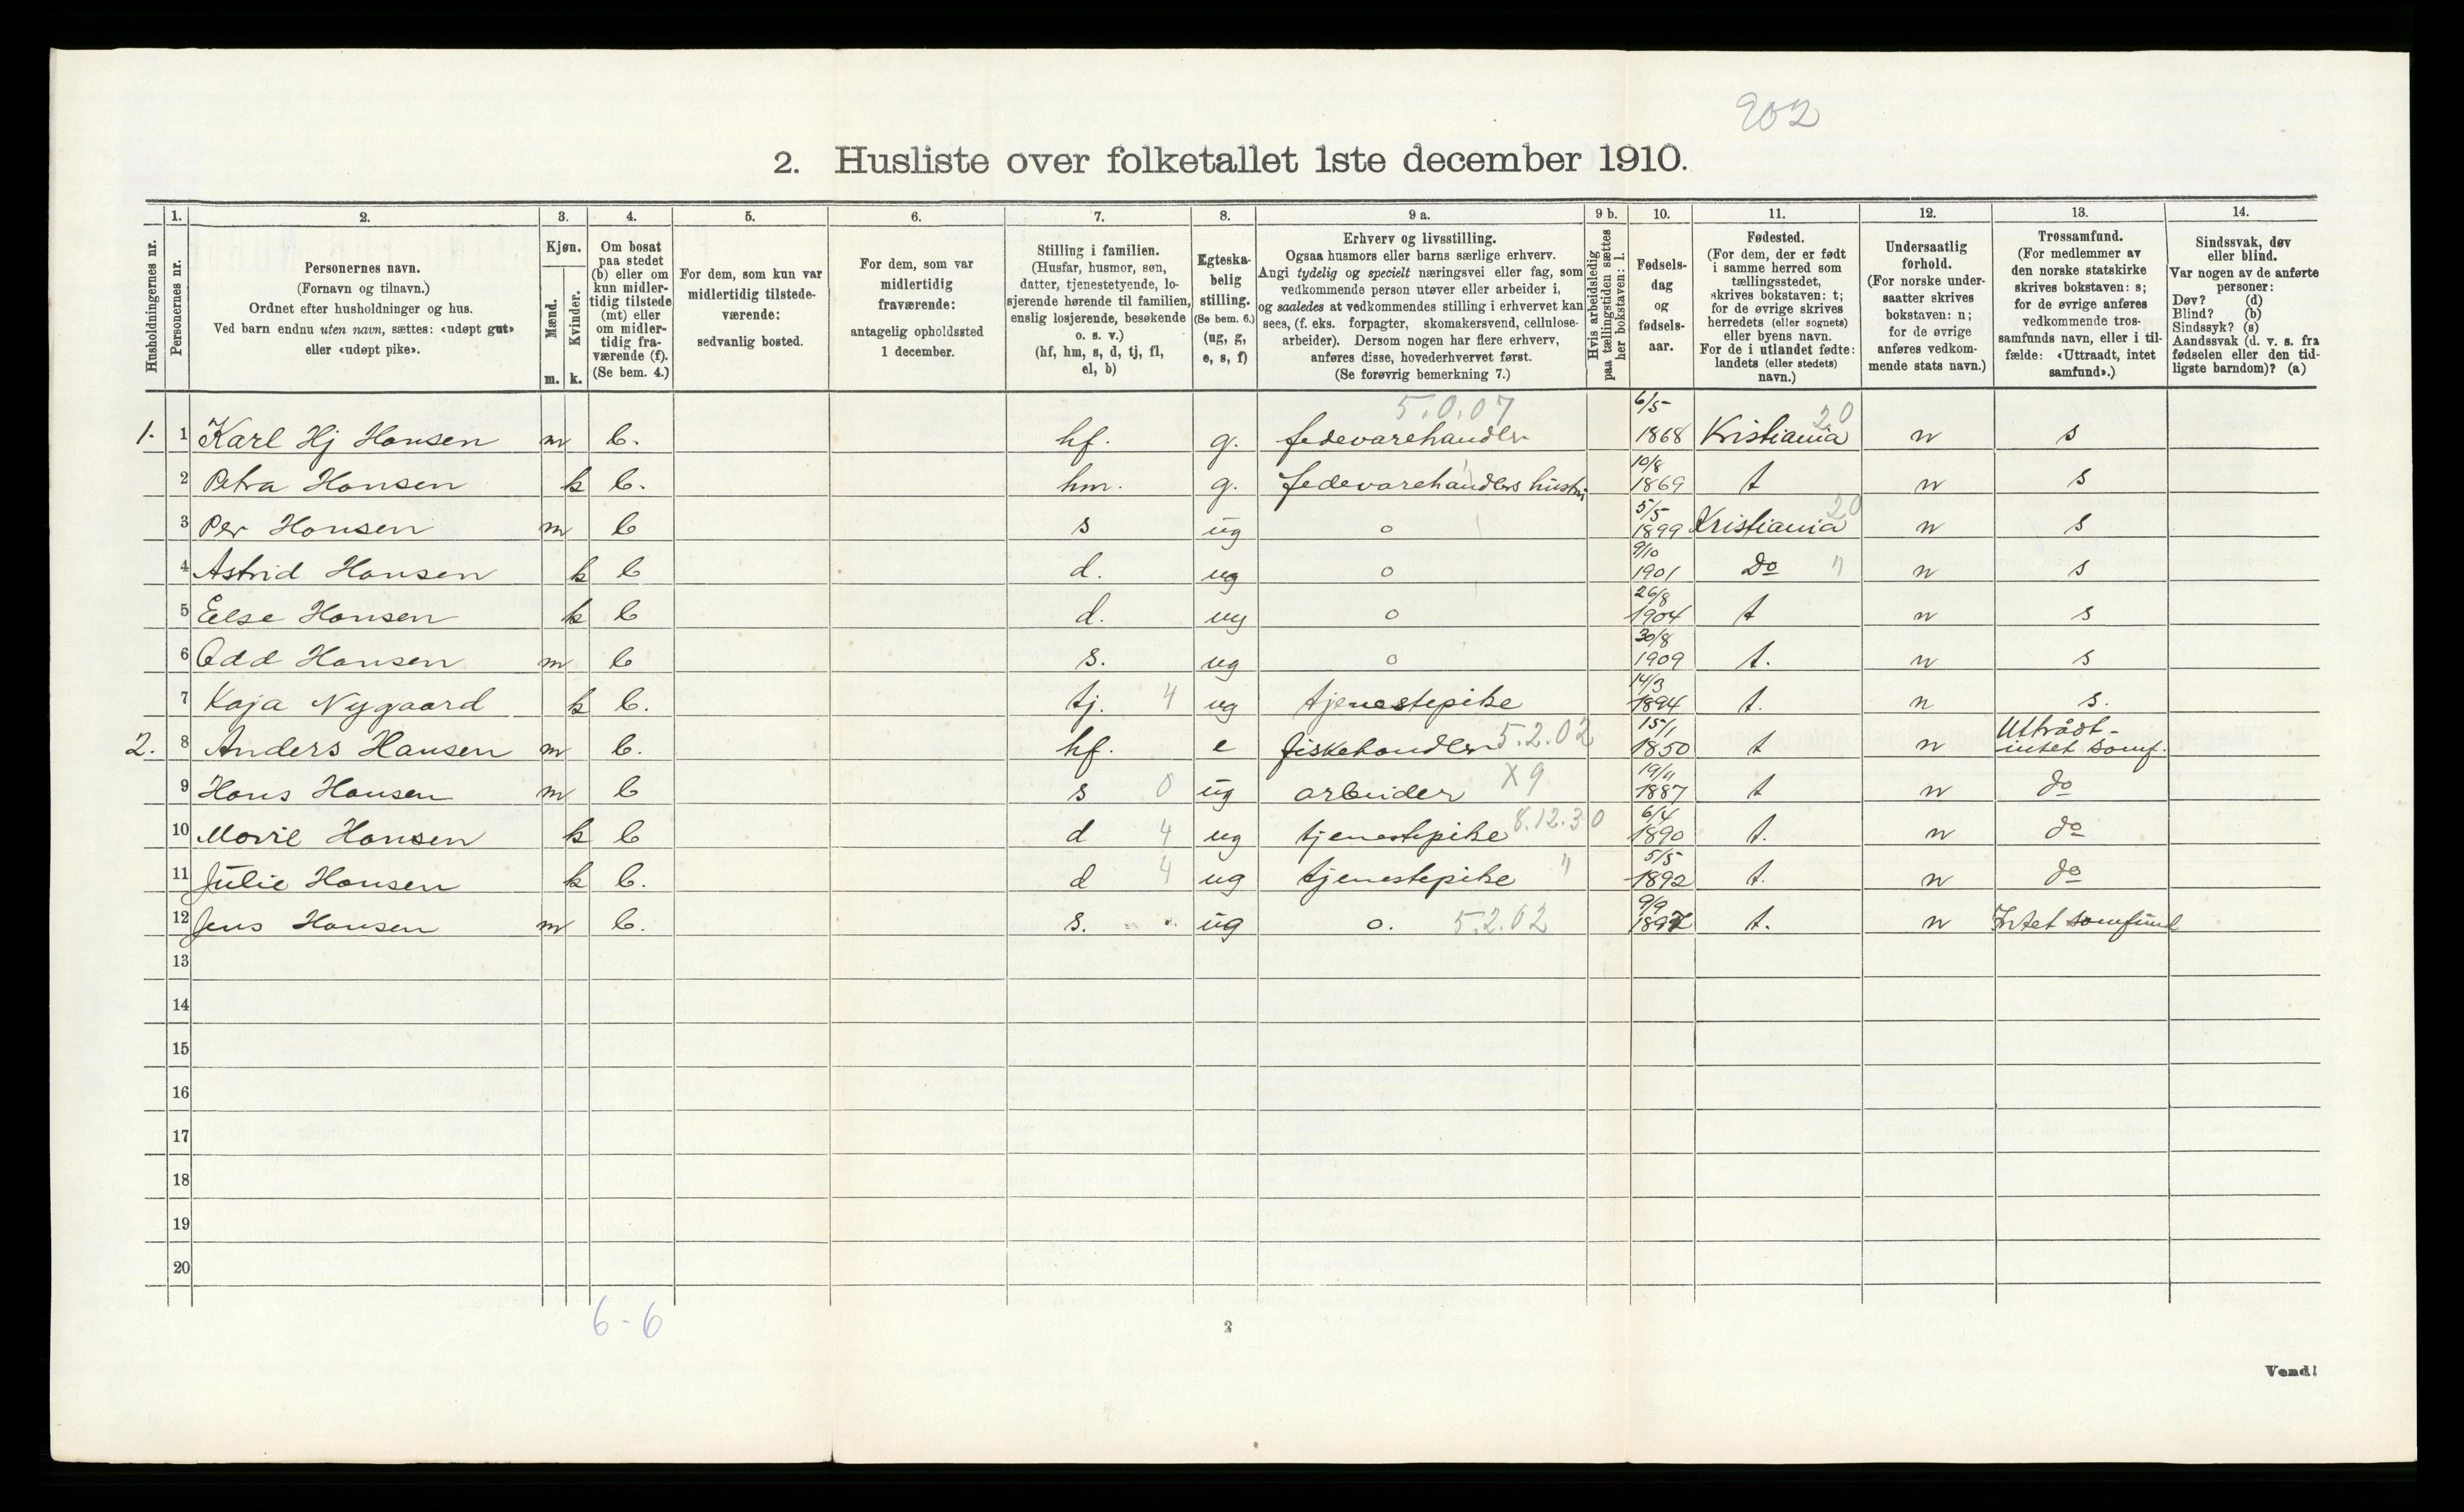 202
2. Husliste over folketallet 1ste december 1910.
Husholdningernes nr.
1.
Personernes nr.
2.
Personernes navn.
(Fornavn og tilnavn.)
Ordnet efter husholdninger og hus.
Ved barn endnu uten navn, sættes: «udøpt gut»
eller «udøpt pike».
3.
Kjøn.
Mænd.
Kvinder.
m. k.
4.
Om bosat
paa stedet
(b) eller om
kun midler-
tidig tilstede
(mt) eller
om midler-
tidig fra-
værende (f).
(Se bem. 4.)
5.
For dem, som kun var
midlertidig tilstede-
værende:
sedvanlig bosted.
6.
For dem, som var
midlertidig
fraværende:
antagelig opholdssted
1 december.
7.
Stilling i familien.
(Husfar, husmor, søn,
datter, tjenestetyende, lo-
sjerende hørende til familien,
enslig losjerende, besøkende
o. s. v.)
(hf, hm, s, d, tj, fl,
el, b)
8.
Egteska-
belig
stilling.
(Se bem. 6.)
(ug, g,
e, s, f)
9 a.
Erhverv og livsstilling.
Ogsaa husmors eller barns særlige erhverv.
Angi tydelig og specielt næringsvei eller fag, som
vedkommende person utøver eller arbeider i,
og saaledes at vedkommendes stilling i erhvervet kan
sees, (f. eks. forpagter, skomakersvend, cellulose-
arbeider). Dersom nogen har flere erhverv,
anføres disse, hovederhvervet først.
(Se forøvrig bemerkning 7.)
9 b.
Hvis arbeidsledig
paa tællingstiden sættes
her bokstaven: l.
10.
Fødsels-
dag
og
fødsels-
aar.
11.
Fødested.
(For dem, der er født
i samme herred som
tællingsstedet,
skrives bokstaven: t;
for de øvrige skrives
herredets (eller sognets)
eller byens navn.
For de i utlandet fødte:
landets (eller stedets)
navn.)
12.
Undersaatlig
forhold.
(For norske under-
saatter skrives
bokstaven: n;
for de øvrige
anføres vedkom-
mende stats navn.)
13.
Trossamfund.
(For medlemmer av
den norske statskirke
skrives bokstaven: s;
for de øvrige anføres
vedkommende tros-
samfunds navn, eller i til-
fælde: «Uttraadt, intet
samfund».)
14.
Sindssvak, døv
eller blind.
Var nogen av de anførte
personer:
Døv? (d)
Blind? (b)
Sindssyk? (s)
Aandssvak (d. v. s. fra
fødselen eller den tid-
ligste barndom)? (a)
1. 1 Karl Hj Hansen m b. hf. g. fedevarehandler 5.0.07 6/5 1868 Kristiania 20 n s
2 Petra Hansen k b. hm. g. fedevarehandlers hustru 10/8 1869 t n s
3 Per Hansen m b s ug o 5/5 1899 Kristiania 20 n s
4 Astrid Hansen k b d. ug o 9/10 1901 Do " n s
5 Else Hansen k b d. ug o 26/8 1904 t n s
6 Odd Hansen m b s. ug o 30/8 1909 t. n s
7 Kaja Nygaard k b. tj. 4 ug tjenestepike 14/3 1894 t. n s.
2. 8 Anders Hansen m b. hf. e fiskehandler 5.2.02 15/1 1850 t n Uttrådt - intet samf.
9 Hans Hansen m b s 0 ug arbeider X9 19/11 1887 t n do
10 Marie Hansen k b d 4 ug tjenestepike 8.12.30 6/4 1890 t. n do
11 Julie Hansen k b. d 4 ug tjenestepike " 5/5 1892 t. n do
12 Jens Hansen m b. s. ug o. 5.2.02 9/9 1897 t. n Intet samfund
13
14
15
16
17
18
19
20
6 - 6
2
Vend!